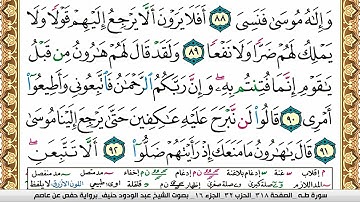 وَإِلَٰهُ مُوسَىٰ فَنَسِيَ ٨٨ أَفَلَا يَرَوْنَ أَلَّا يَرْجِعُ إِلَيْهِمْ قَوْلًا وَلَا
يَمْلِكُ لَهُمْ ضَرًّا وَلَا نَفْعًا ٨٩ وَلَقَدْ قَالَ لَهُمْ هَٰرُونُ مِن قَبْلُ
يَٰقَوْمِ إِنَّمَا فُتِنتُم بِهِۦ وَإِنَّ رَبَّكُمُ ٱلرَّحْمَٰنُ فَٱتَّبِعُونِى وَأَطِيعُوٓا۟
أَمْرِى ٩٠ قَالُوا۟ لَن نَّبْرَحَ عَلَيْهِ عَٰكِفِينَ حَتَّىٰ يَرْجِعَ إِلَيْنَا مُوسَىٰ
٩١ قَالَ يَٰهَٰرُونُ مَا مَنَعَكَ إِذْ رَأَيْتَهُمْ ضَلُّوٓا۟ ٩٢ أَلَّا تَتَّبِعَنِ
سورة طه الصفحة ٣١٨ الحزب ٣٢ الجزء ١٦ بصوت الشيخ عبد الودود حنيف برواية حفص عن عاصم